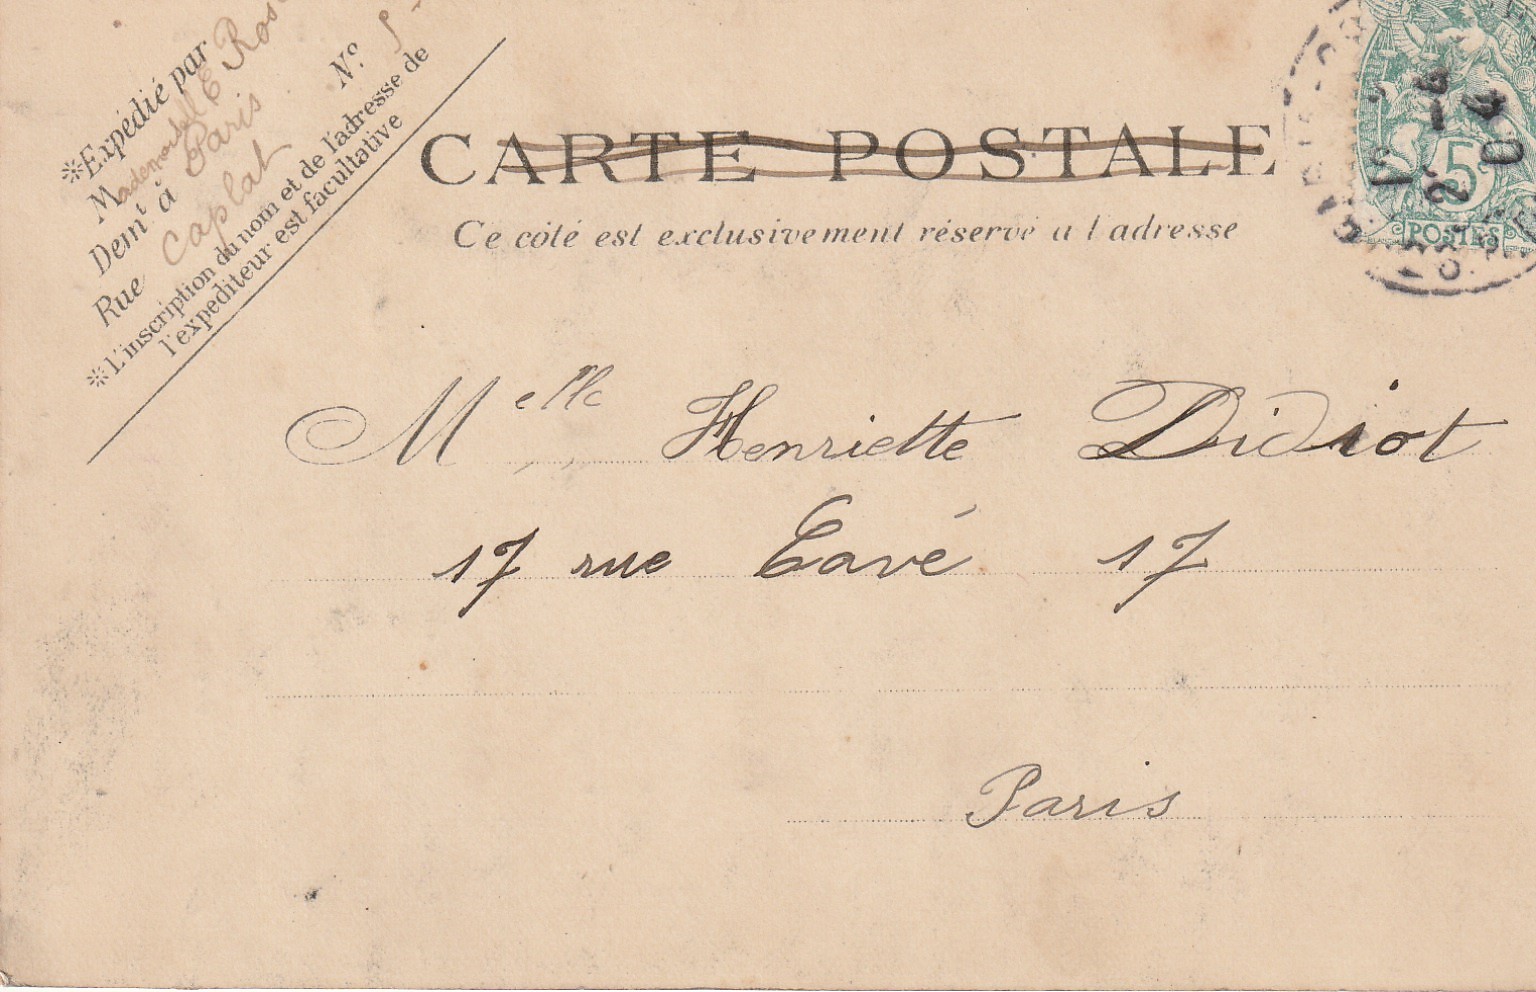 ※Expédié par
Mademoisel E Rose
Demt à Paris
Rue Caplat No. 5
※L'inscription du nom et de l'adresse de
l'expéditeur est facultative
CARTE POSTALE
Ce côté est exclusivement réservé a l'adresse
5
POSTES
Melle Henriette Didiot
17 rue Cavé 17
Paris